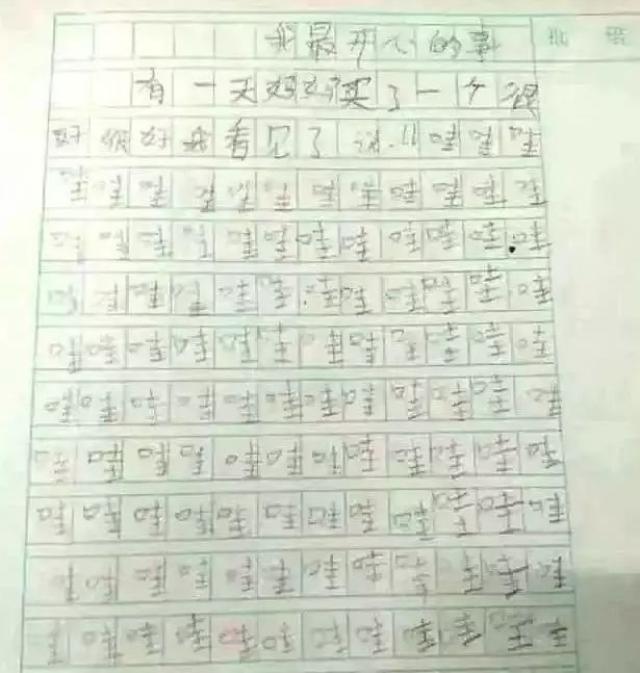 我最开心的事 批语
有一天妈妈买了一个很
好很好我看见了说:"哇哇哇
哇哇哇哇哇哇哇哇哇哇哇哇
哇哇哇哇哇哇哇哇哇哇哇哇
哇哇哇哇哇哇哇哇哇哇哇哇
哇哇哇哇哇哇哇哇哇哇哇哇
哇哇哇哇哇哇哇哇哇哇哇哇
哇哇哇哇哇哇哇哇哇哇哇哇
哇哇哇哇哇哇哇哇哇哇哇哇
哇哇哇哇哇哇哇哇哇哇哇哇
哇哇哇哇哇哇哇哇哇哇哇哇